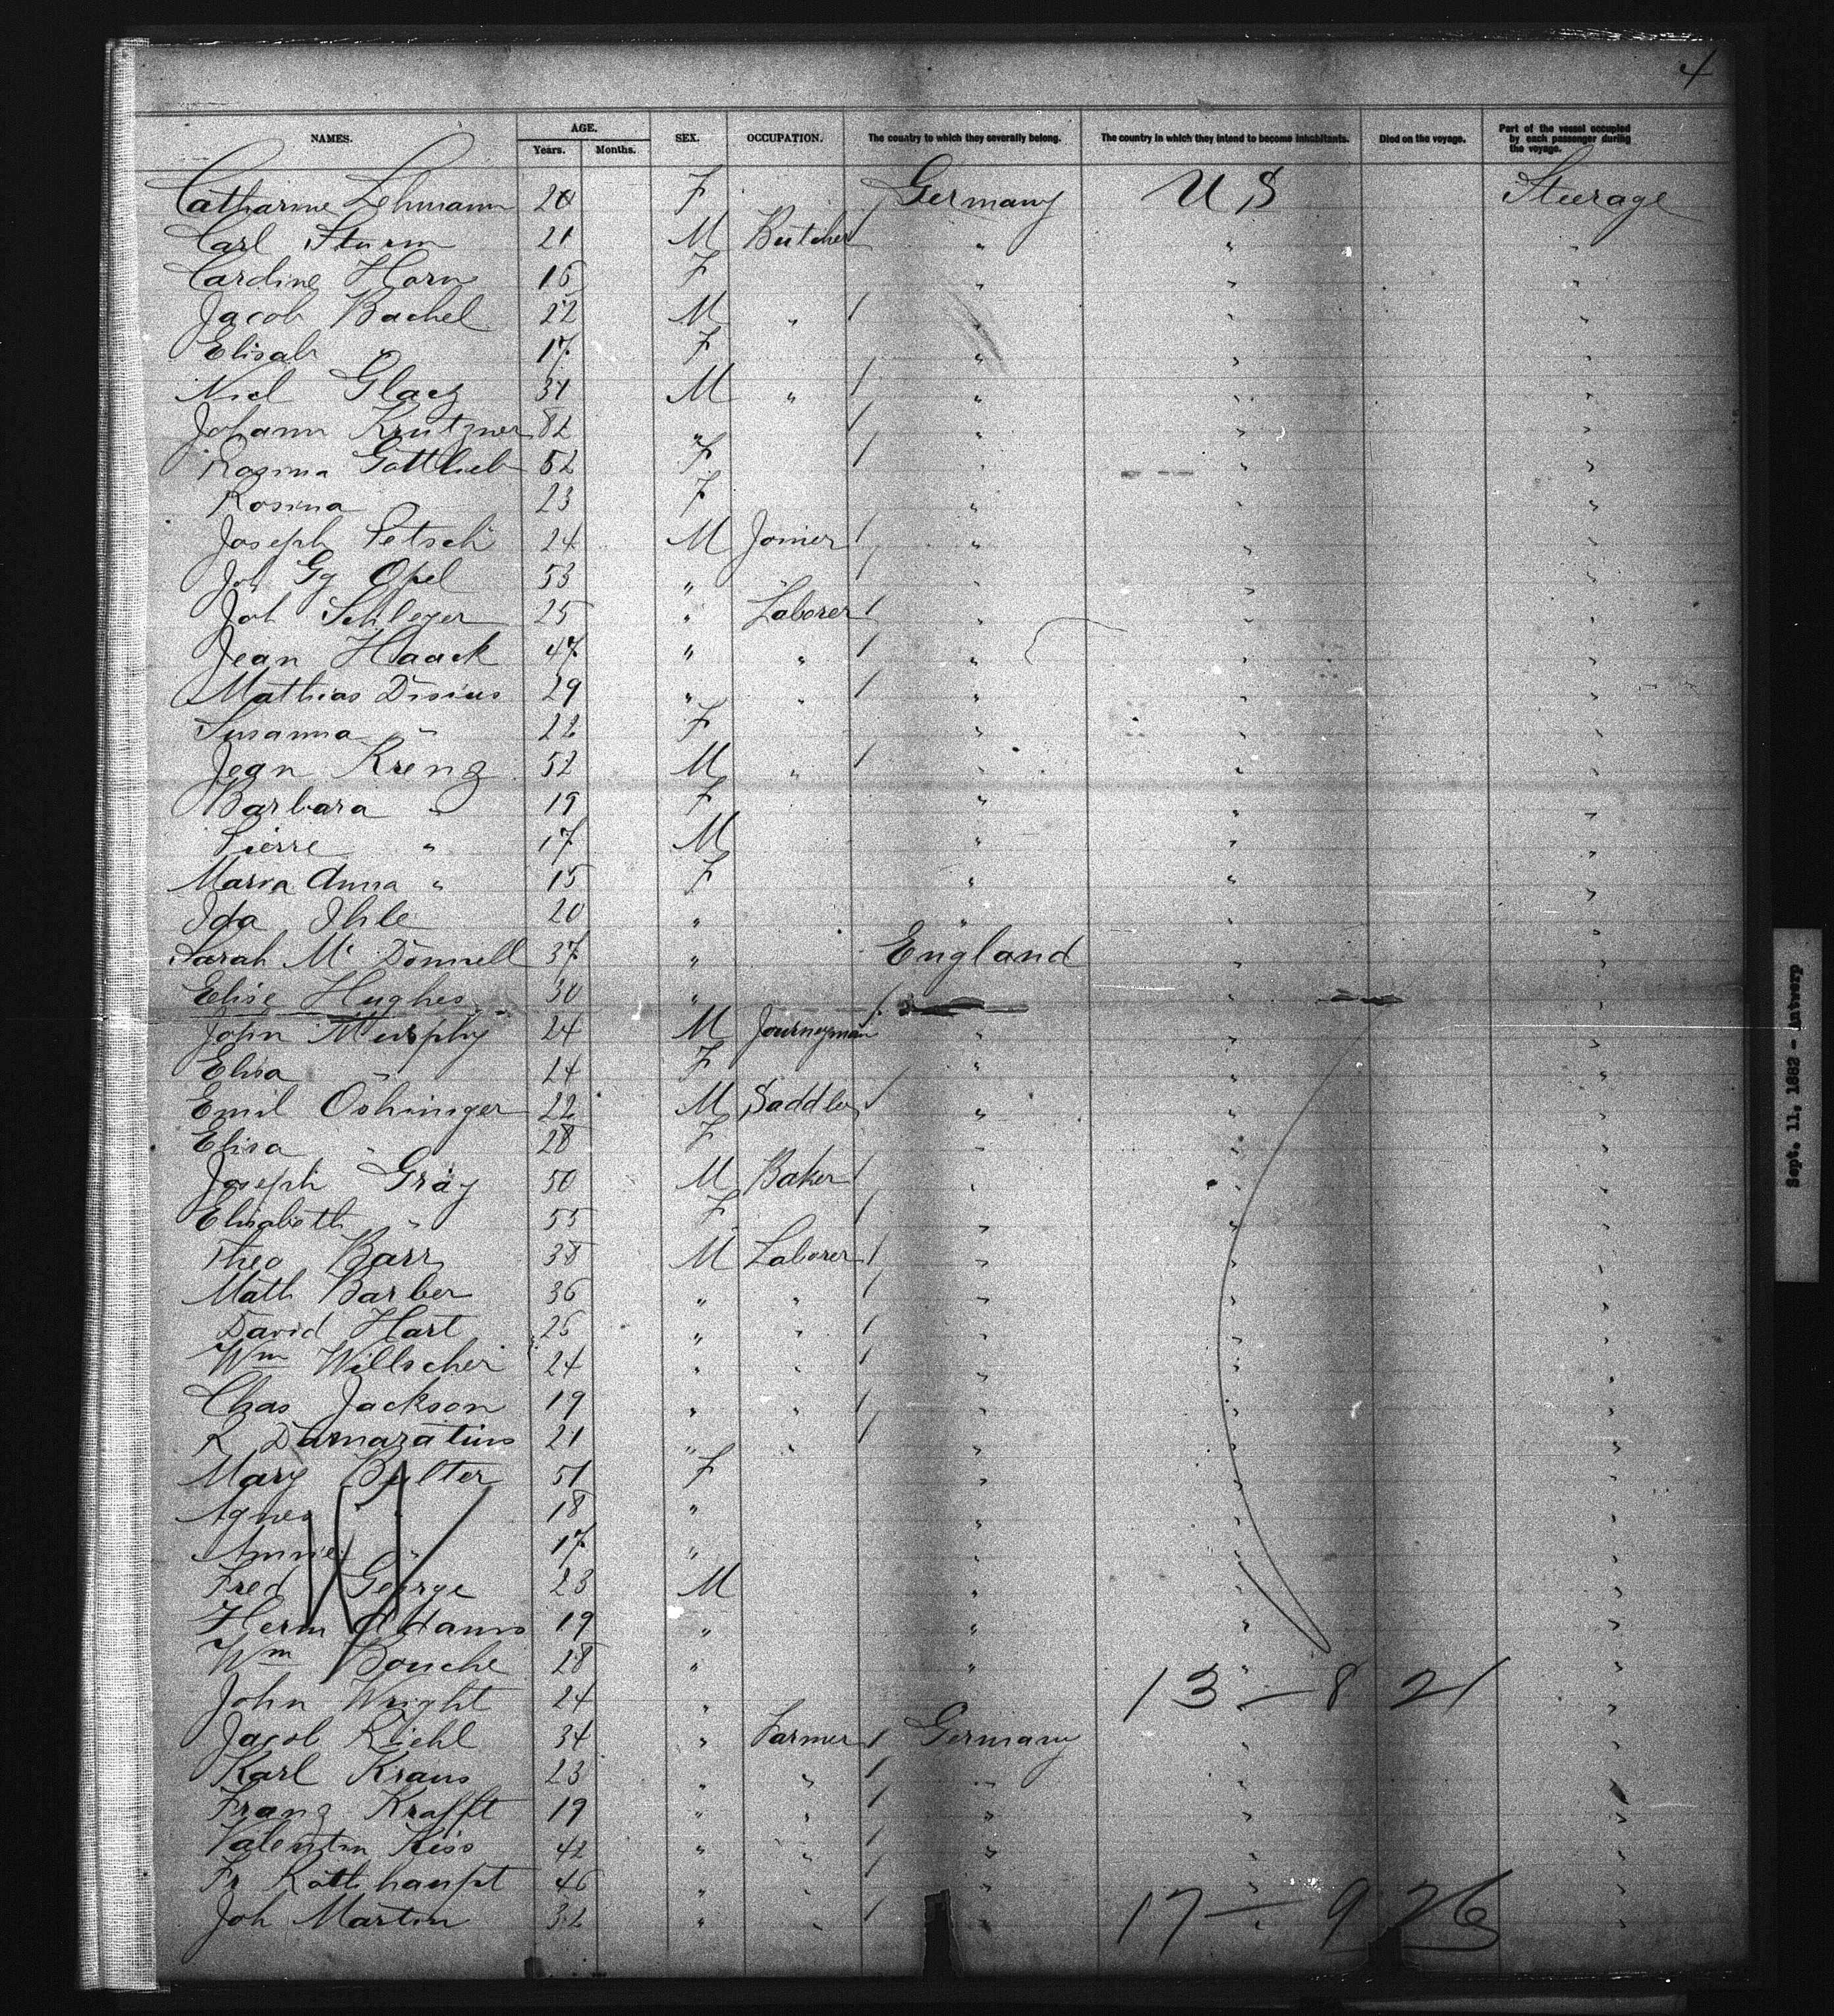 4
NAMES. AGE. SEX. OCCUPATION. The country to which they severally belong. The country in which they intend to become inhabitants. Died on the voyage. Part of the vessel occupied by each passenger during the voyage.
Years. Months.
Catharine Lehmann 20 F Germany U S Steerage
Carl Sturm 21 M Butcher " " "
Caroline Horn 16 F " " "
Jacob Bachel 22 M " " " "
Elisab " 17 F " " "
Nicl Glaez 31 M " " " "
Johann Krutzner 82 " " " "
Rosina Gottlieb 52 F " " "
Rosina 23 F " " "
Joseph Petsch 24 M Joiner " " "
Joh Gg Opel 53 " " " " "
Joh Schleger 25 " Laborer " " "
Jean Haack 47 " " " " "
Mathias Disius 29 " " " " "
Susanna " 22 F " " "
Jean Kreng 52 M " " " "
Barbara " 19 F " " "
Pierre " 17 M " " "
Maria Anna " 15 F " " "
Ida Ihle 20 " " " "
Sarah Mc Donnell 37 " England " "
Elise Hughes 30 " " "
John Murphy 24 M Journeyman " " "
Elisa " 24 F " " "
Emil Oshiniger 22 M Saddler " " "
Elisa " 28 F " " "
Joseph Gray 50 M Baker " " "
Elisabeth " 55 F " " "
Theo Barr 38 M Laborer " " "
Math Barber 36 " " " " "
David Hart 26 " " " " "
Wm Willscher 24 " " " " "
Chas Jackson 19 " " " " "
R Damazatius 21 " " " " "
Mary Bulter 51 F " " "
Agnes " 18 " " " "
Annie " 17 " " " "
Fred George 23 M " " "
Herm Adams 19 " " " "
Wm Bouche 28 " " " "
John Wright 24 " 13 — 8 21 "
Jacob Riehl 34 " Farmer Germany " "
Karl Kraus 23 " " " " "
Franz Krafft 19 " " " " "
Valentin Kiss 42 " " " " "
Fr Rotthaupt 46 " " " " "
Joh Martin 32 " " " 17 — 9 26 "
Sept. 11, 1882 - Antwerp